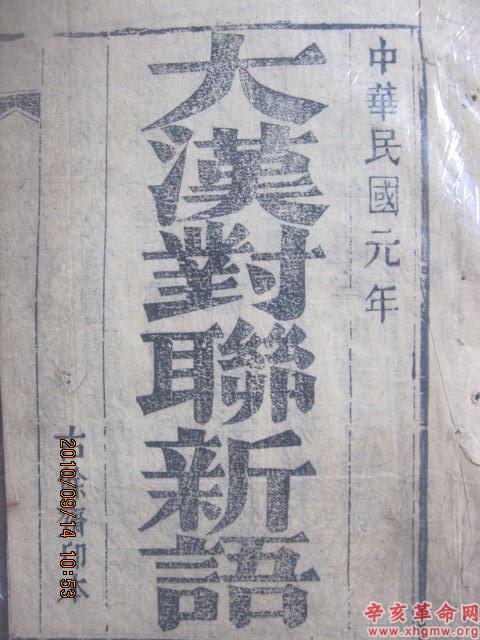 中華民國元年
大漢對聯新語
2010/09/14 10:53
辛亥革命网
www.xhgmw.org